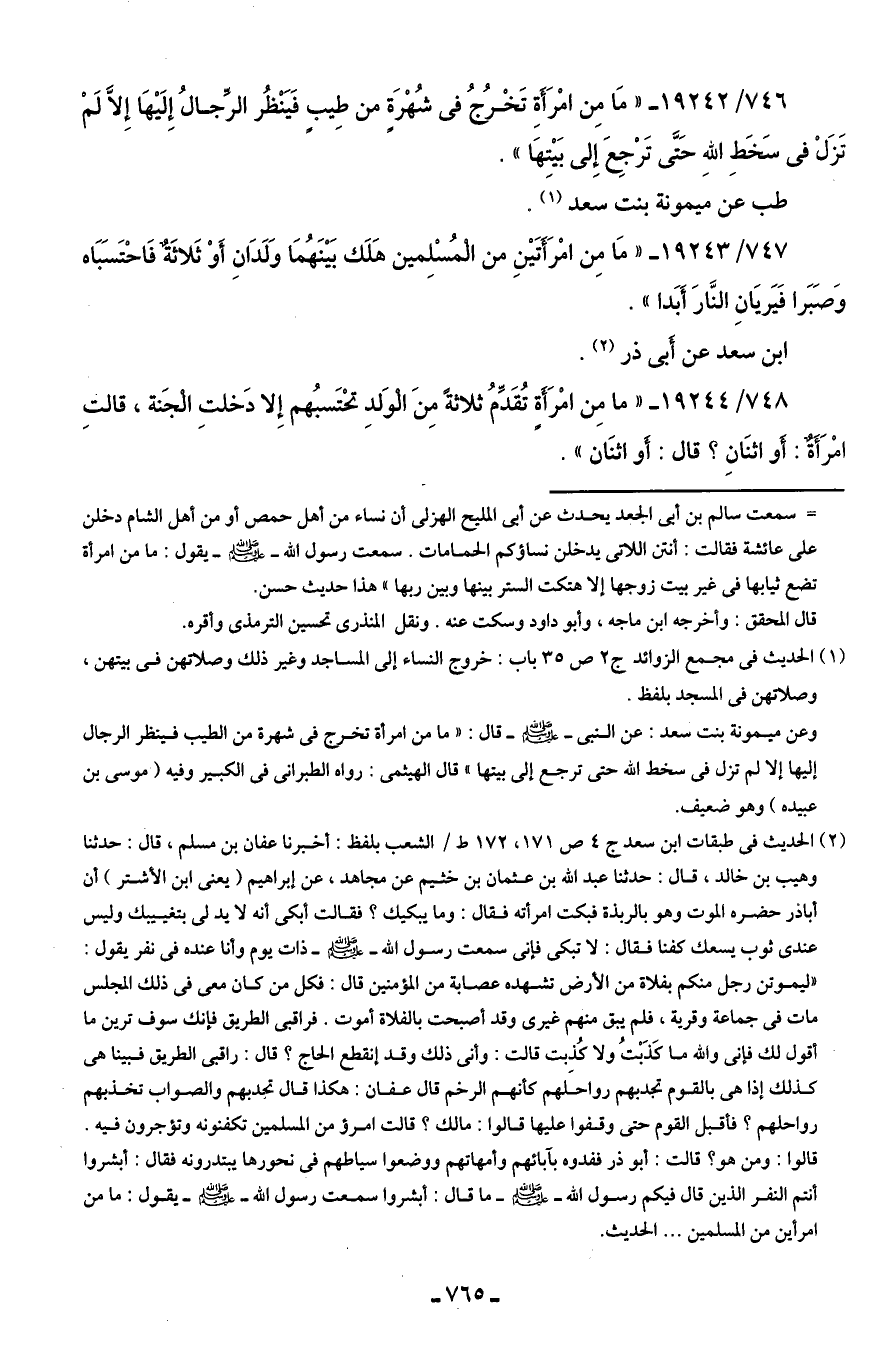 ٧٤٦/ ١٩٢٤٢ـ « مَا مِن امْرَأَةٍ تَخْرُجُ فى شُهْرَةٍ من طِيبٍ فَيَنْظُر الرِّجالُ إِلَيْهَا إِلاَّ لَمْ
تَزَلْ فى سَخَطِ اللهِ حَتَّى تَرْجِعَ إِلى بَيْتِهَا » .
طب عن ميمونة بنت سعد (١) .
٧٤٧/ ١٩٢٤٣ـ « مَا مِن امْرأَتَيْنِ من الْمُسْلِمين هَلَك بَيْنَهُمَا ولَدَانِ أَوْ ثَلاثَةٌ فَاحْتَسَبَاه
وَصَبَرا فَيَرِيَانِ النَّارَ أَبَدا » .
ابن سعد عن أَبى ذر (٢) .
٧٤٨/ ١٩٢٤٤ـ « ما مِن امْرَأَةٍ تُقَدِّمُ ثلاثةً مِنَ الْولَدِ تحْتَسبُهم إِلا دَخلتِ الْجَنة ، قالتِ
امْرَأَةٌ : أَو اثنَانِ ؟ قال : أَو اثنَان » .
= سمعت سالم بن أبى الجعد يحدث عن أبى المليح الهزلى أن نساء من أهل حمص أو من أهل الشام دخلن
على عائشة فقالت : أنتن اللاتى يدخلن نساؤكم الحمامات . سمعت رسول الله ـ ﷺ ـ يقول : ما من امرأة
تضع ثيابها فى غير بيت زوجها إلا هتكت الستر بينها وبين ربها » هذا حديث حسن.
قال المحقق : وأخرجه ابن ماجه ، وأبو داود وسكت عنه . ونقل المنذرى تحسين الترمذى وأقره.
(١) الحديث فى مجمع الزوائد ج٢ ص ٣٥ باب : خروج النساء إلى المساجد وغير ذلك وصلاتهن فى بيتهن ،
وصلاتهن فى المسجد بلفظ .
وعن ميمونة بنت سعد : عن النبى ـ ﷺ ـ قال : « ما من امرأة تخرج فى شهرة من الطيب فينظر الرجال
إليها إلا لم تزل فى سخط الله حتى ترجع إلى بيتها » قال الهيثمى : رواه الطبرانى فى الكبير وفيه ( موسى بن
عبيده ) وهو ضعيف.
(٢) الحديث فى طبقات ابن سعد ج ٤ ص ١٧١، ١٧٢ ط / الشعب بلفظ : أخبرنا عفان بن مسلم ، قال : حدثنا
وهيب بن خالد ، قال : حدثنا عبد الله بن عثمان بن خثيم عن مجاهد ، عن إبراهيم ( يعنى ابن الأشتر ) أن
أباذر حضره الموت وهو بالربذة فبكت امرأته فقال : وما يبكيك ؟ فقالت أبكى أنه لا يد لى بتغييبك وليس
عندى ثوب يسعك كفنا فقال : لا تبكى فإنى سمعت رسول الله ـ ﷺ ـ ذات يوم وأنا عنده فى نفر يقول :
«ليموتن رجل منكم بفلاة من الأرض تشهده عصابة من المؤمنين قال : فكل من كان معى فى ذلك المجلس
مات فى جماعة وقرية ، فلم يبق منهم غيرى وقد أصبحت بالفلاة أموت . فراقبى الطريق فإنك سوف ترين ما
أقول لك فإنى والله ما كَذَبْتُ ولا كُذِبت قالت : وأنى ذلك وقد إنقطع الحاج ؟ قال : راقبى الطريق فبينا هى
كذلك إذا هى بالقوم تجدبهم رواحلهم كأنهم الرخم قال عفان : هكذا قال تجدبهم والصواب تخذبهم
رواحلهم ؟ فأقبل القوم حتى وقفوا عليها قالوا : مالك ؟ قالت امرؤ من المسلمين تكفنونه وتؤجرون فيه .
قالوا : ومن هو؟ قالت : أبو ذر ففدوه بآبائهم وأمهاتهم ووضعوا سياطهم فى نحورها يبتدرونه فقال : أبشروا
أنتم النفر الذين قال فيكم رسول الله ـ ﷺ ـ ما قال : أبشروا سمعت رسول الله ـ ﷺ ـ يقول : ما من
امرأين من المسلمين ... الحديث.
ـ ٧٦٥ ـ